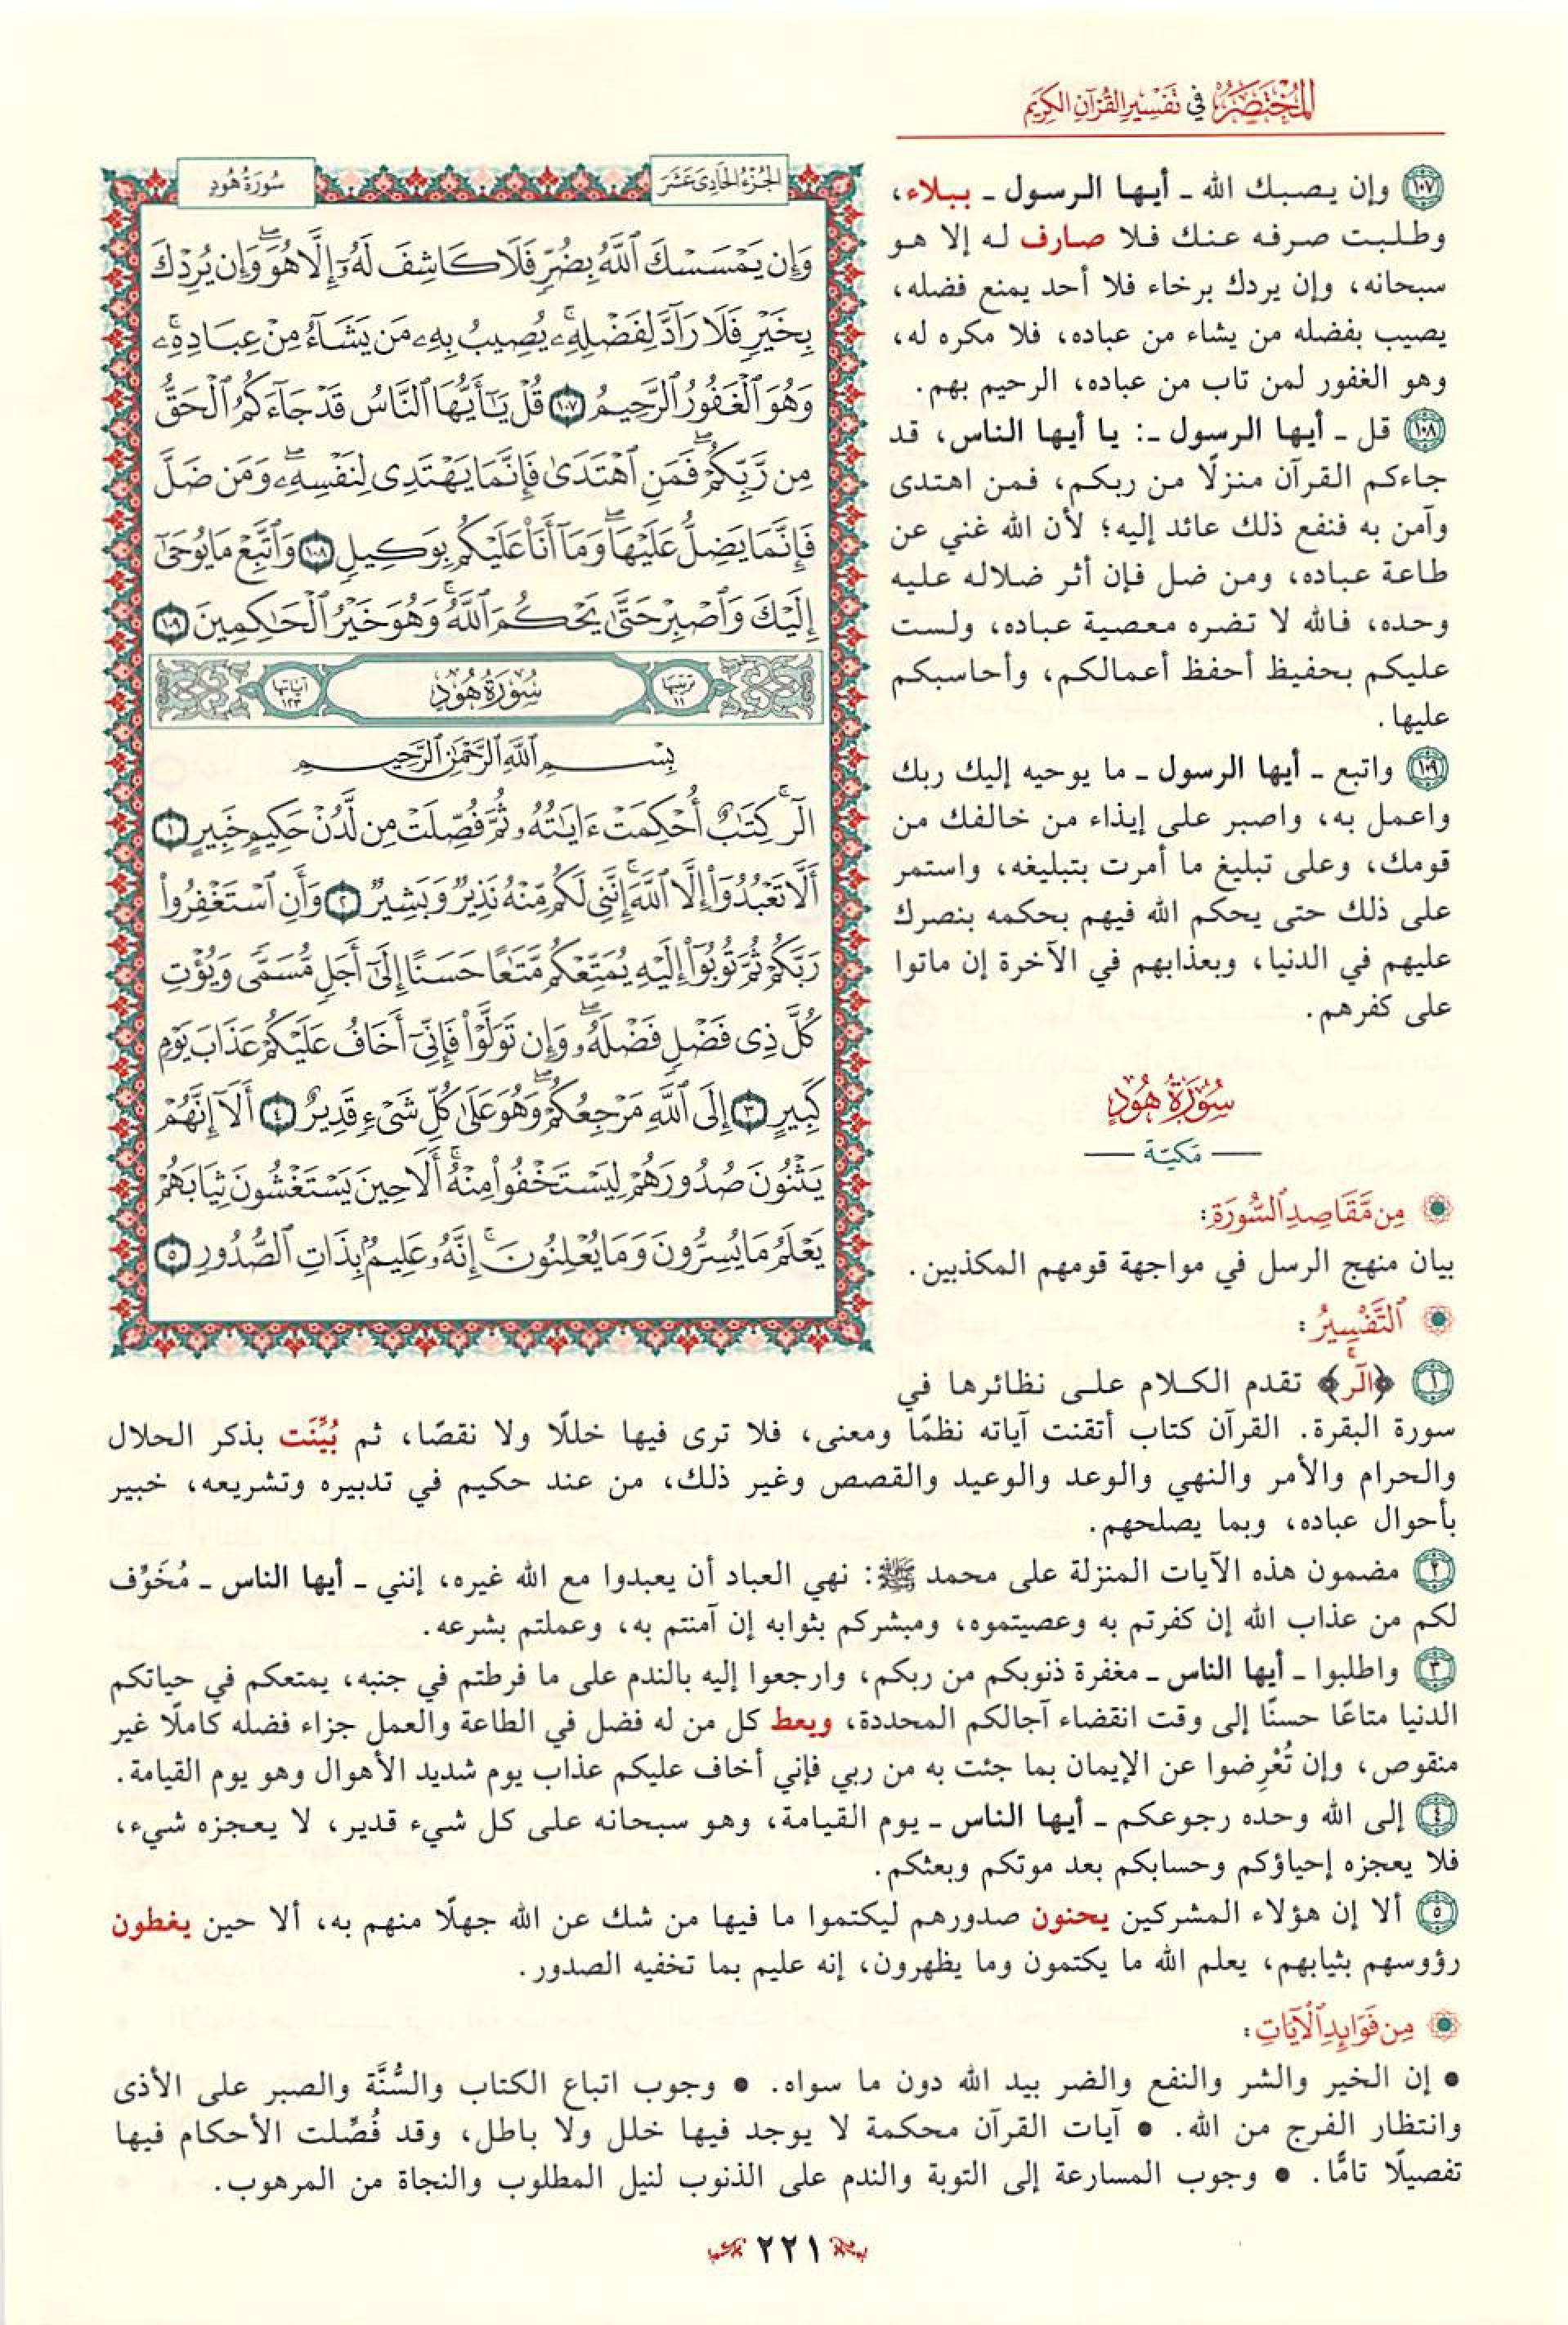 المختصر في تفسير القرآن الكريم
الجزء الحادي عشر
سورة هود
وَإِن يَمْسَسْكَ ٱللَّهُ بِضُرٍّ فَلَا كَاشِفَ لَهُۥٓ إِلَّا هُوَۖ وَإِن يُرِدْكَ
بِخَيْرٍ فَلَا رَآدَّ لِفَضْلِهِۦۚ يُصِيبُ بِهِۦ مَن يَشَآءُ مِنْ عِبَادِهِۦۚ
وَهُوَ ٱلْغَفُورُ ٱلرَّحِيمُ ١٠٧ قُلْ يَٰٓأَيُّهَا ٱلنَّاسُ قَدْ جَآءَكُمُ ٱلْحَقُّ
مِن رَّبِّكُمْۖ فَمَنِ ٱهْتَدَىٰ فَإِنَّمَا يَهْتَدِى لِنَفْسِهِۦۖ وَمَن ضَلَّ
فَإِنَّمَا يَضِلُّ عَلَيْهَاۖ وَمَآ أَنَا۠ عَلَيْكُم بِوَكِيلٍ ١٠٨ وَٱتَّبِعْ مَا يُوحَىٰٓ
إِلَيْكَ وَٱصْبِرْ حَتَّىٰ يَحْكُمَ ٱللَّهُۚ وَهُوَ خَيْرُ ٱلْحَٰكِمِينَ ١٠٩
ترتيبها ١١ سُورَةُ هُودٍ آياتها ١٢٣
بِسْمِ ٱللَّهِ ٱلرَّحْمَٰنِ ٱلرَّحِيمِ
الٓرۚ كِتَٰبٌ أُحْكِمَتْ ءَايَٰتُهُۥ ثُمَّ فُصِّلَتْ مِن لَّدُنْ حَكِيمٍ خَبِيرٍ ١
أَلَّا تَعْبُدُوٓا۟ إِلَّا ٱللَّهَۚ إِنَّنِى لَكُم مِّنْهُ نَذِيرٌ وَبَشِيرٌ ٢ وَأَنِ ٱسْتَغْفِرُوا۟
رَبَّكُمْ ثُمَّ تُوبُوٓا۟ إِلَيْهِ يُمَتِّعْكُم مَّتَٰعًا حَسَنًا إِلَىٰٓ أَجَلٍ مُّسَمًّى وَيُؤْتِ
كُلَّ ذِى فَضْلٍ فَضْلَهُۥۖ وَإِن تَوَلَّوْا۟ فَإِنِّىٓ أَخَافُ عَلَيْكُمْ عَذَابَ يَوْمٍ
كَبِيرٍ ٣ إِلَى ٱللَّهِ مَرْجِعُكُمْۖ وَهُوَ عَلَىٰ كُلِّ شَىْءٍ قَدِيرٌ ٤ أَلَآ إِنَّهُمْ
يَثْنُونَ صُدُورَهُمْ لِيَسْتَخْفُوا۟ مِنْهُۚ أَلَا حِينَ يَسْتَغْشُونَ ثِيَابَهُمْ
يَعْلَمُ مَا يُسِرُّونَ وَمَا يُعْلِنُونَۚ إِنَّهُۥ عَلِيمٌۢ بِذَاتِ ٱلصُّدُورِ ٥
١٠٧ وإن يصبك الله ـ أيها الرسول ـ ببلاء،
وطلبت صرفه عنك فلا صارف له إلا هو
سبحانه، وإن يردك برخاء فلا أحد يمنع فضله،
يصيب بفضله من يشاء من عباده، فلا مكره له،
وهو الغفور لمن تاب من عباده، الرحيم بهم.
١٠٨ قل ـ أيها الرسول ـ: يا أيها الناس، قد
جاءكم القرآن منزلًا من ربكم، فمن اهتدى
وآمن به فنفع ذلك عائد إليه؛ لأن الله غني عن
طاعة عباده، ومن ضل فإن أثر ضلاله عليه
وحده، فالله لا تضره معصية عباده، ولست
عليكم بحفيظ أحفظ أعمالكم، وأحاسبكم
عليها.
١٠٩ واتبع ـ أيها الرسول ـ ما يوحيه إليك ربك
واعمل به، واصبر على إيذاء من خالفك من
قومك، وعلى تبليغ ما أمرت بتبليغه، واستمر
على ذلك حتى يحكم الله فيهم بحكمه بنصرك
عليهم في الدنيا، وبعذابهم في الآخرة إن ماتوا
على كفرهم.
سُورَةُ هُودٍ
مَكيّة
مِن مَّقَاصِدِ ٱلسُّورَةِ:
بيان منهج الرسل في مواجهة قومهم المكذبين.
ٱلتَّفْسِيرُ:
١ ﴿الٓرۚ﴾ تقدم الكلام على نظائرها في
سورة البقرة. القرآن كتاب أتقنت آياته نظمًا ومعنى، فلا ترى فيها خللًا ولا نقصًا، ثم بُيِّنَت بذكر الحلال
والحرام والأمر والنهي والوعد والوعيد والقصص وغير ذلك، من عند حكيم في تدبيره وتشريعه، خبير
بأحوال عباده، وبما يصلحهم.
٢ مضمون هذه الآيات المنزلة على محمد ﷺ: نهي العباد أن يعبدوا مع الله غيره، إنني ـ أيها الناس ـ مُخَوِّف
لكم من عذاب الله إن كفرتم به وعصيتموه، ومبشركم بثوابه إن آمنتم به، وعملتم بشرعه.
٣ واطلبوا ـ أيها الناس ـ مغفرة ذنوبكم من ربكم، وارجعوا إليه بالندم على ما فرطتم في جنبه، يمتعكم في حياتكم
الدنيا متاعًا حسنًا إلى وقت انقضاء آجالكم المحددة، ويعط كل من له فضل في الطاعة والعمل جزاء فضله كاملًا غير
منقوص، وإن تُعْرِضوا عن الإيمان بما جئت به من ربي فإني أخاف عليكم عذاب يوم شديد الأهوال وهو يوم القيامة.
٤ إلى الله وحده رجوعكم ـ أيها الناس ـ يوم القيامة، وهو سبحانه على كل شيء قدير، لا يعجزه شيء،
فلا يعجزه إحياؤكم وحسابكم بعد موتكم وبعثكم.
٥ ألا إن هؤلاء المشركين يحنون صدورهم ليكتموا ما فيها من شك عن الله جهلًا منهم به، ألا حين يغطون
رؤوسهم بثيابهم، يعلم الله ما يكتمون وما يظهرون، إنه عليم بما تخفيه الصدور.
مِن فَوَائِدِ ٱلْآيَاتِ:
• إن الخير والشر والنفع والضر بيد الله دون ما سواه. • وجوب اتباع الكتاب والسُّنَّة والصبر على الأذى
وانتظار الفرج من الله. • آيات القرآن محكمة لا يوجد فيها خلل ولا باطل، وقد فُصِّلت الأحكام فيها
تفصيلًا تامًّا. • وجوب المسارعة إلى التوبة والندم على الذنوب لنيل المطلوب والنجاة من المرهوب.
٢٢١